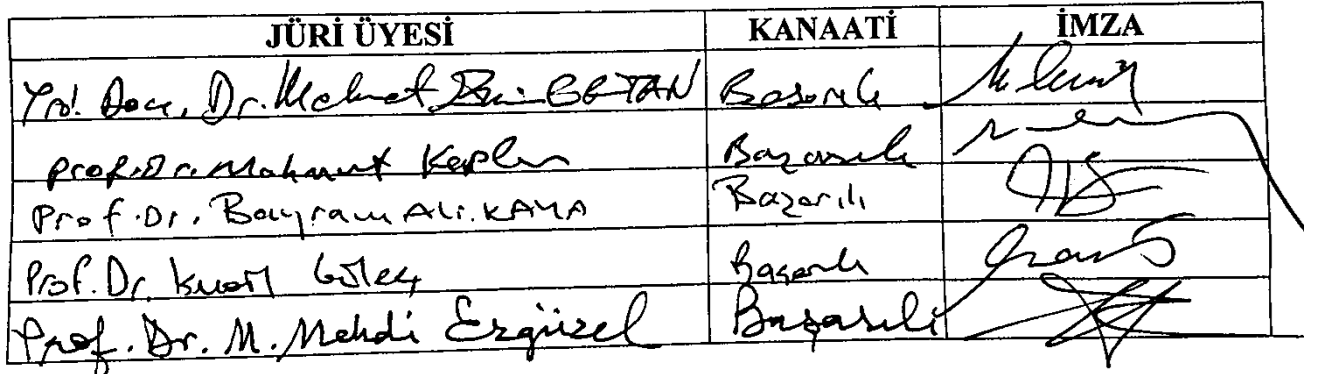 JÜRİ ÜYESİ KANAATİ İMZA
Yrd. Doç. Dr. Mehmet Emin Başarılı
Prof. Dr. Mahmut Kaplan Başarılı
Prof. Dr. Bayram Ali KAYA Başarılı
Prof. Dr. Başarılı
Prof. Dr. M. Mehdi Ergüzel Başarılı